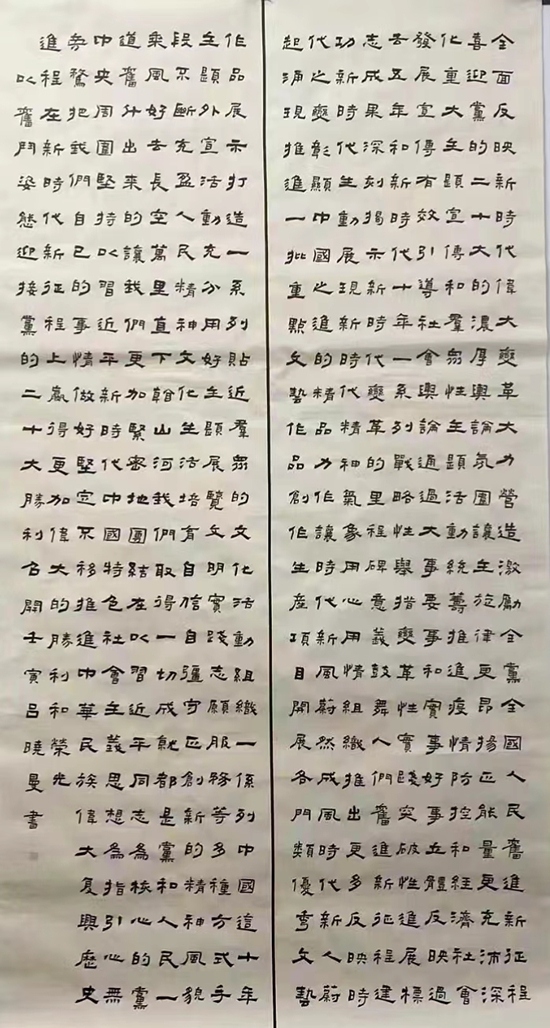 全面反映新時代偉大變革大力營造激勵全黨全國人民奮進新征程深
喜迎黨的二十大的濃厚輿論氛圍讓主旋律更昂揚正能量更充沛會
化重大主題宣傳和羣衆性主題活動統籌推進疫情防控和經濟社會
發展宣傳有效引導社會輿論通過大事要事和實事好事五體反映過
去五年和新時代十年一系列戰略性舉措變革性實踐突破性進展標
志成果深刻揭示新時代變革的里程碑意義鼓舞人們奮進新征程建
功新時代生動展現新時代精神氣象用心用情組織推出更多反映時
代之變彰顯中國之進的精品力作讓時代新風蔚然成風時代新人蔚
起涌現推進一批重點文藝作品創作生産項目開展各門類優秀文藝
作品展示打造一系列貼近羣衆的文化活動組織一係列中國這十年
主題外宣活動充分用好主題展覽文明實踐志願服務等多種方式手
段不斷充盈人民精神文化生活培育自信自彊守正創新的精神風貌
乘風好去長空萬里直下翰山河我們取得一切成就都是黨和人民一
道奮什出來的讓我們更加緊密地團結在以習近平同志為核心的黨
中央周圍堅持以習近平新時代中國特色社會主義思想為指引心無
旁驁把我們自己的事情做好堅定不移推進中華民族偉大复興歷史
進程在新時代新征程上贏得更加偉大的勝利和榮光
以奮鬥姿態迎接黨的二十大勝利召開壬寅呂曉曼書